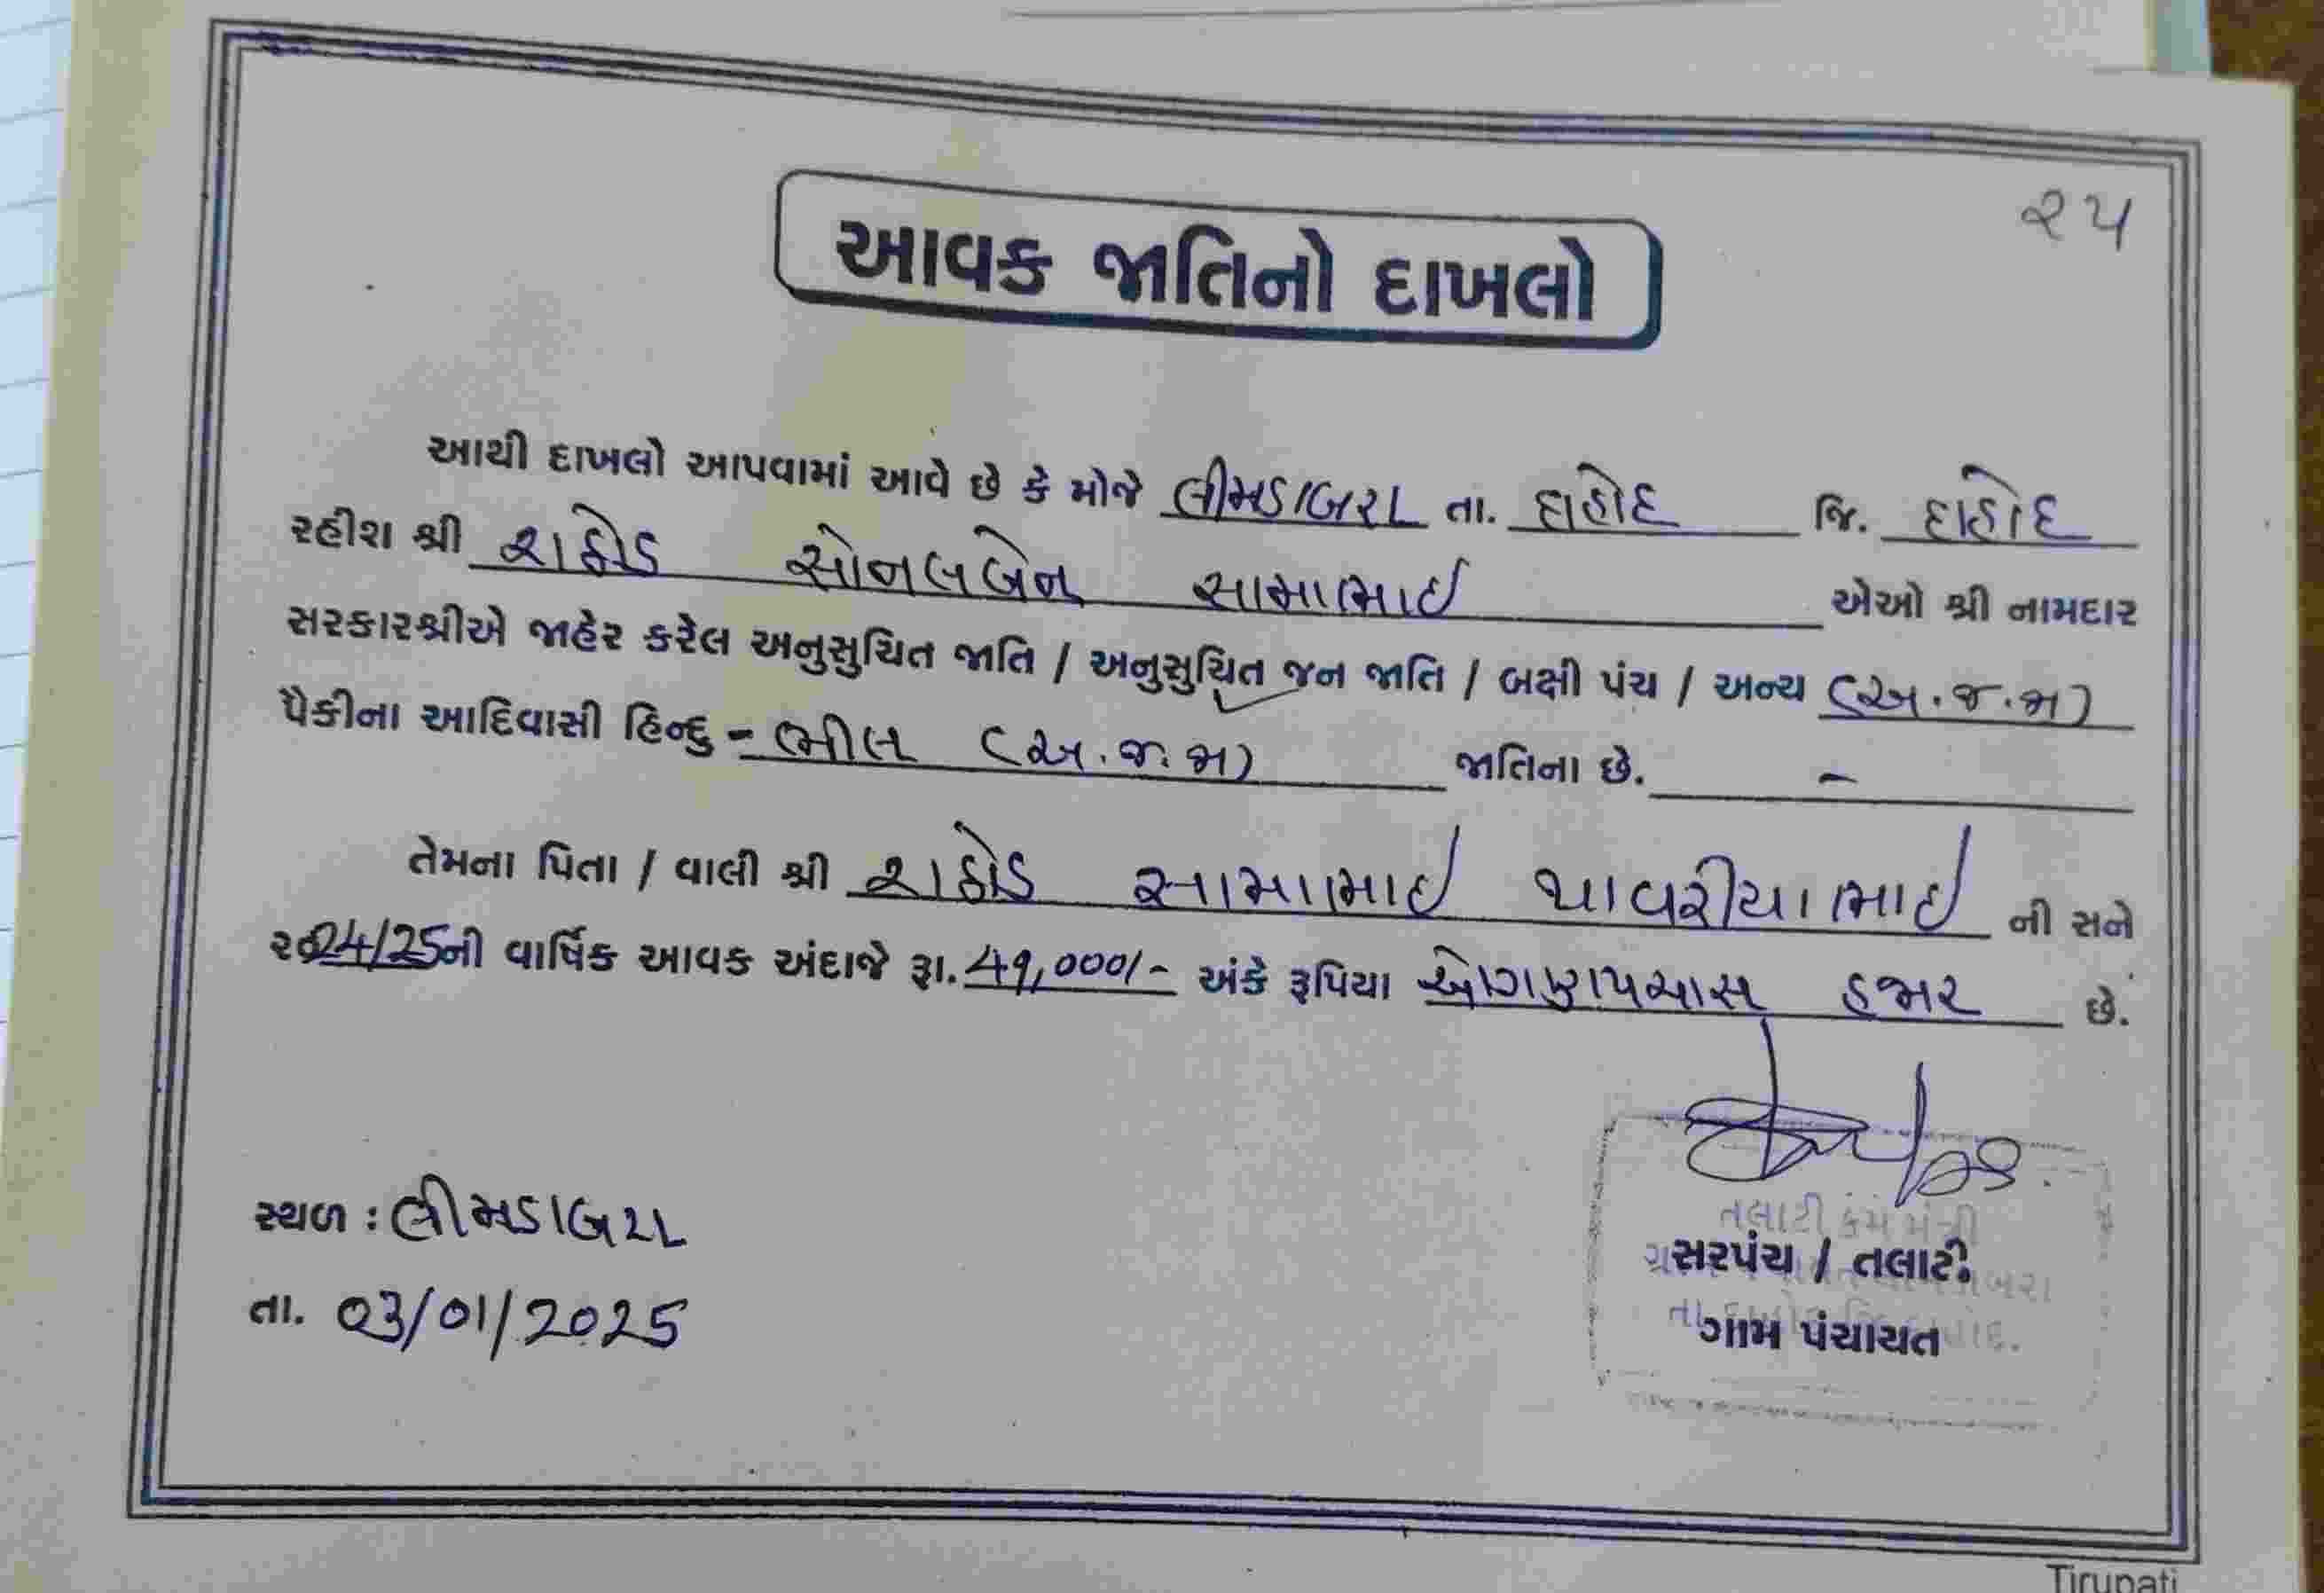 ૨૫
આવક જાતિનો દાખલો
આથી દાખલો આપવામાં આવે છે કે મોજે લીમડાબરા તા. દાહોદ જિ. દાહોદ
રહીશ શ્રી રાઠોડ સોનલબેન સામાભાઈ એઓ શ્રી નામદાર
સરકારશ્રીએ જાહેર કરેલ અનુસુચિત જાતિ / અનુસુચિત જન જાતિ / બક્ષી પંચ / અન્ય (અ.જ.જા)
પૈકીના આદિવાસી હિન્દુ - ભીલ (અ.જ.જા) જાતિના છે. -
તેમના પિતા / વાલી શ્રી રાઠોડ સામાભાઈ થાવરીયાભાઈ ની સને
૨૦24/25ની વાર્ષિક આવક અંદાજે રૂા. 49,000/- અંકે રૂપિયા ઓગણપચાસ હજાર છે.
સ્થળ : લીમડાબરા
તા. 03/01/2025
તલાટી કમ મંત્રી
સરપંચ / તલાટી
ગામ પંચાયત
Tirupati